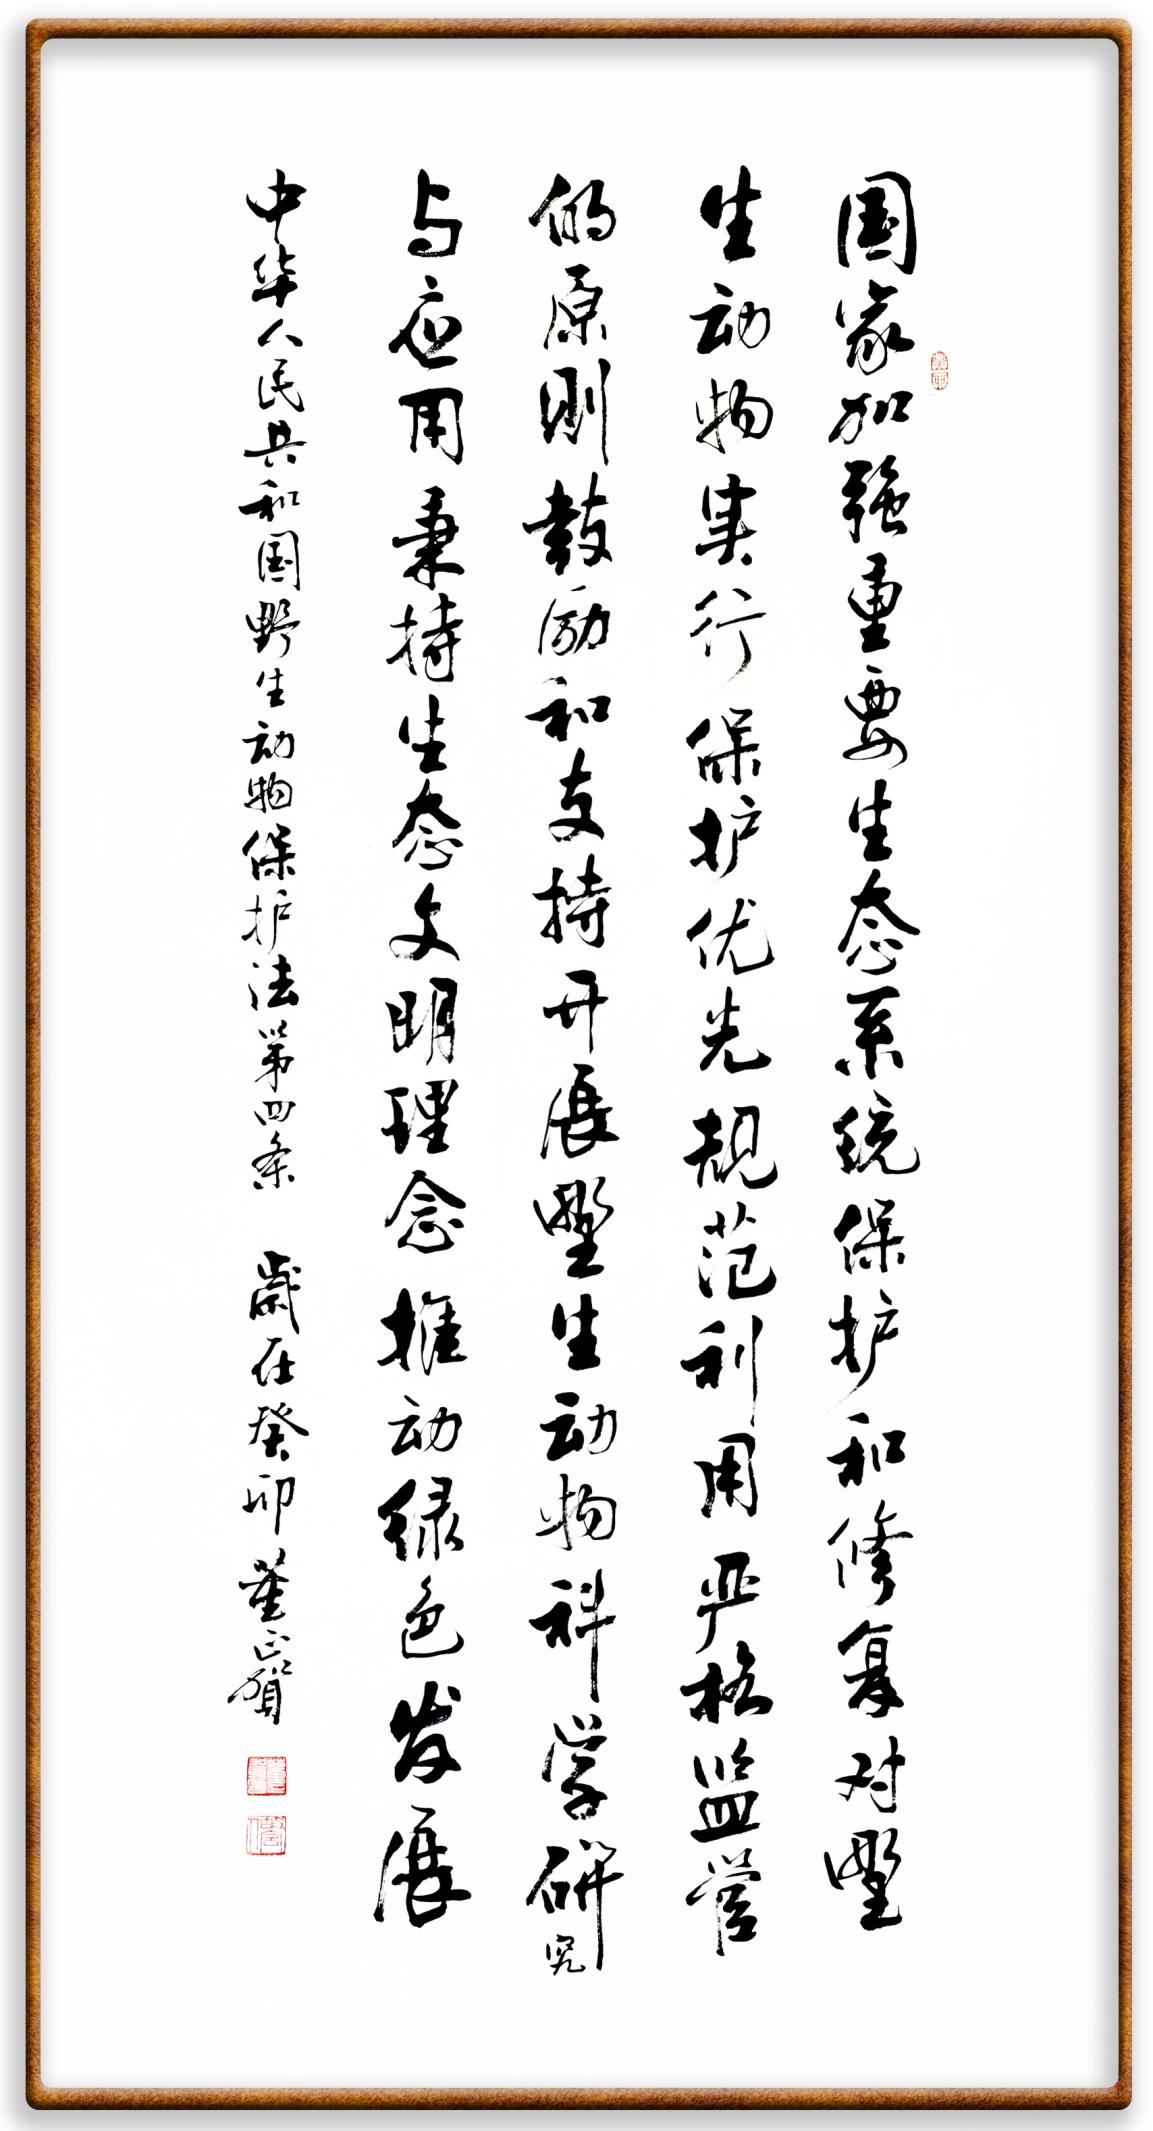 国家加强重要生态系统保护和修复对野
生动物实行保护优先规范利用严格监管
的原则鼓励和支持开展野生动物科学研究
与应用秉持生态文明理念推动绿色发展
中华人民共和国野生动物保护法第四条 歲在癸卯 董正贺